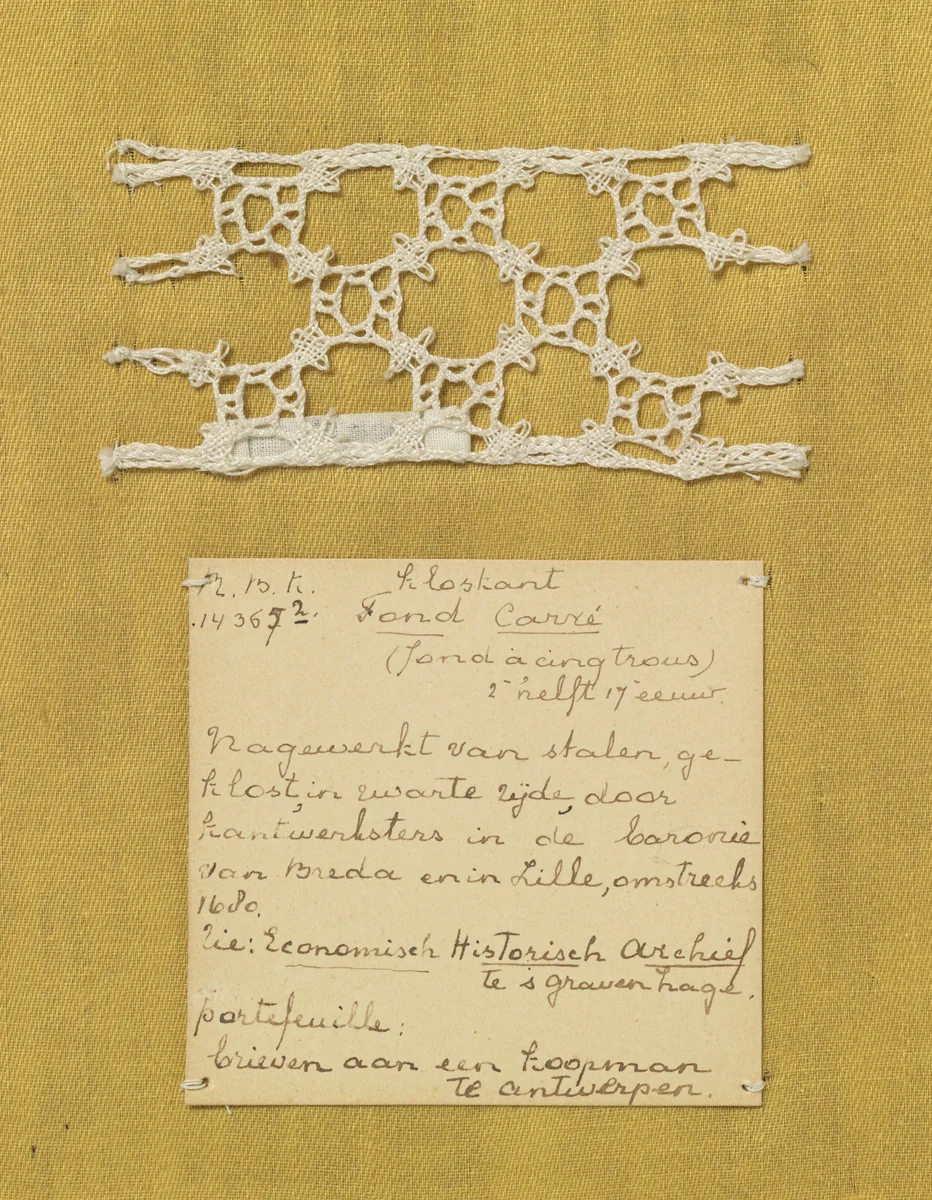 N. B. K. Kloskant
14367². Fond Carré
(fond à cinq trous)
2ᵉ helft 17ᵉ eeuw.
Nagewerkt van stalen, ge-
klost, in zwarte zijde, door
kantwerksters in de baronie
van Breda en in Lille, omstreeks
1680.
Zie: Economisch Historisch Archief
te 's gravenhage.
portefeuille:
brieven aan een koopman
te antwerpen.